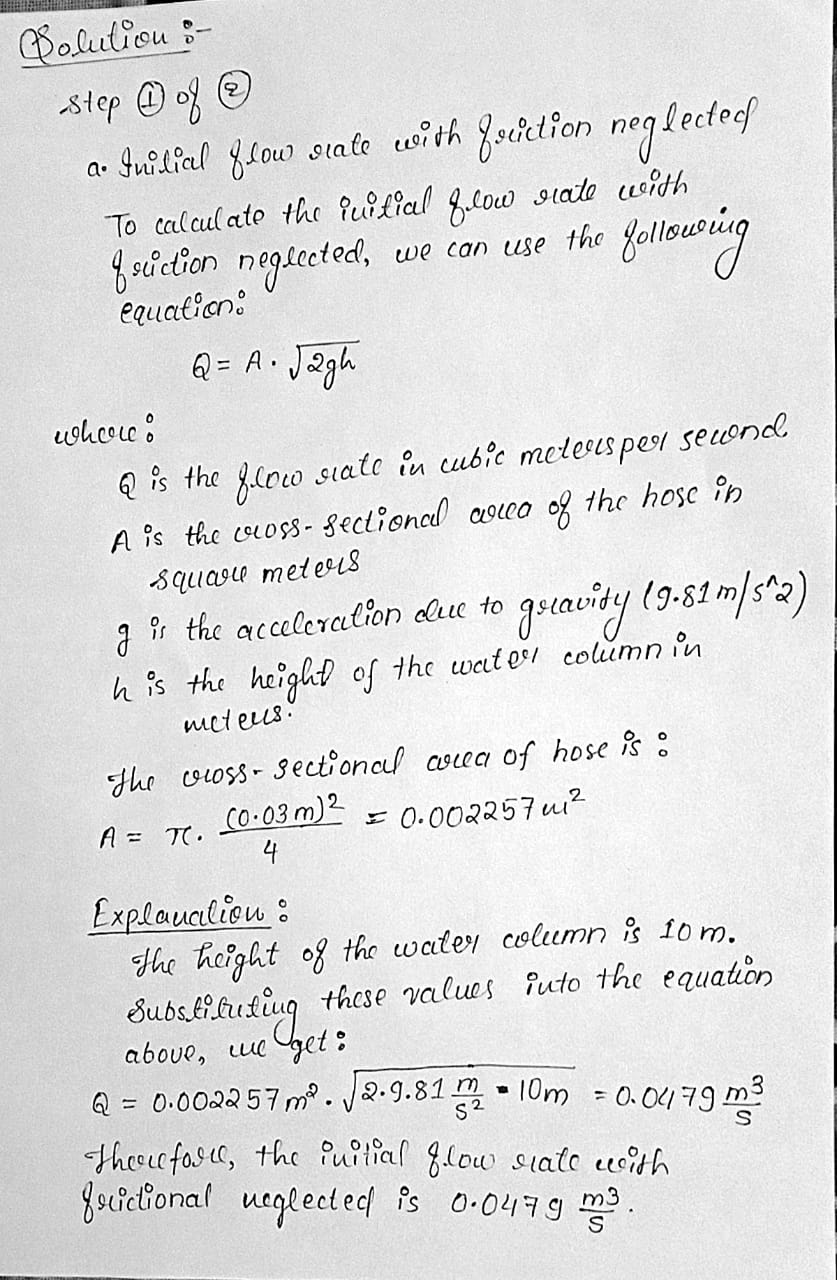 Solution :-
step ① of ②
a. Initial flow rate with friction neglected
To calculate the initial flow rate with
friction neglected, we can use the following
equation:
Q = A · √2gh
where:
Q is the flow rate in cubic meters per second
A is the cross-sectional area of the hose in
square meters
g is the acceleration due to gravity (9.81 m/s^2)
h is the height of the water column in
meters.
The cross-sectional area of hose is :
A = π. (0.03 m)²/4 = 0.002257 m²
Explanation :
The height of the water column is 10 m.
Substituting these values into the equation
above, we get :
Q = 0.002257 m². √2.9.81 m/s² · 10m = 0.0479 m³/s
Therefore, the initial flow rate with
frictional neglected is 0.0479 m3/s.